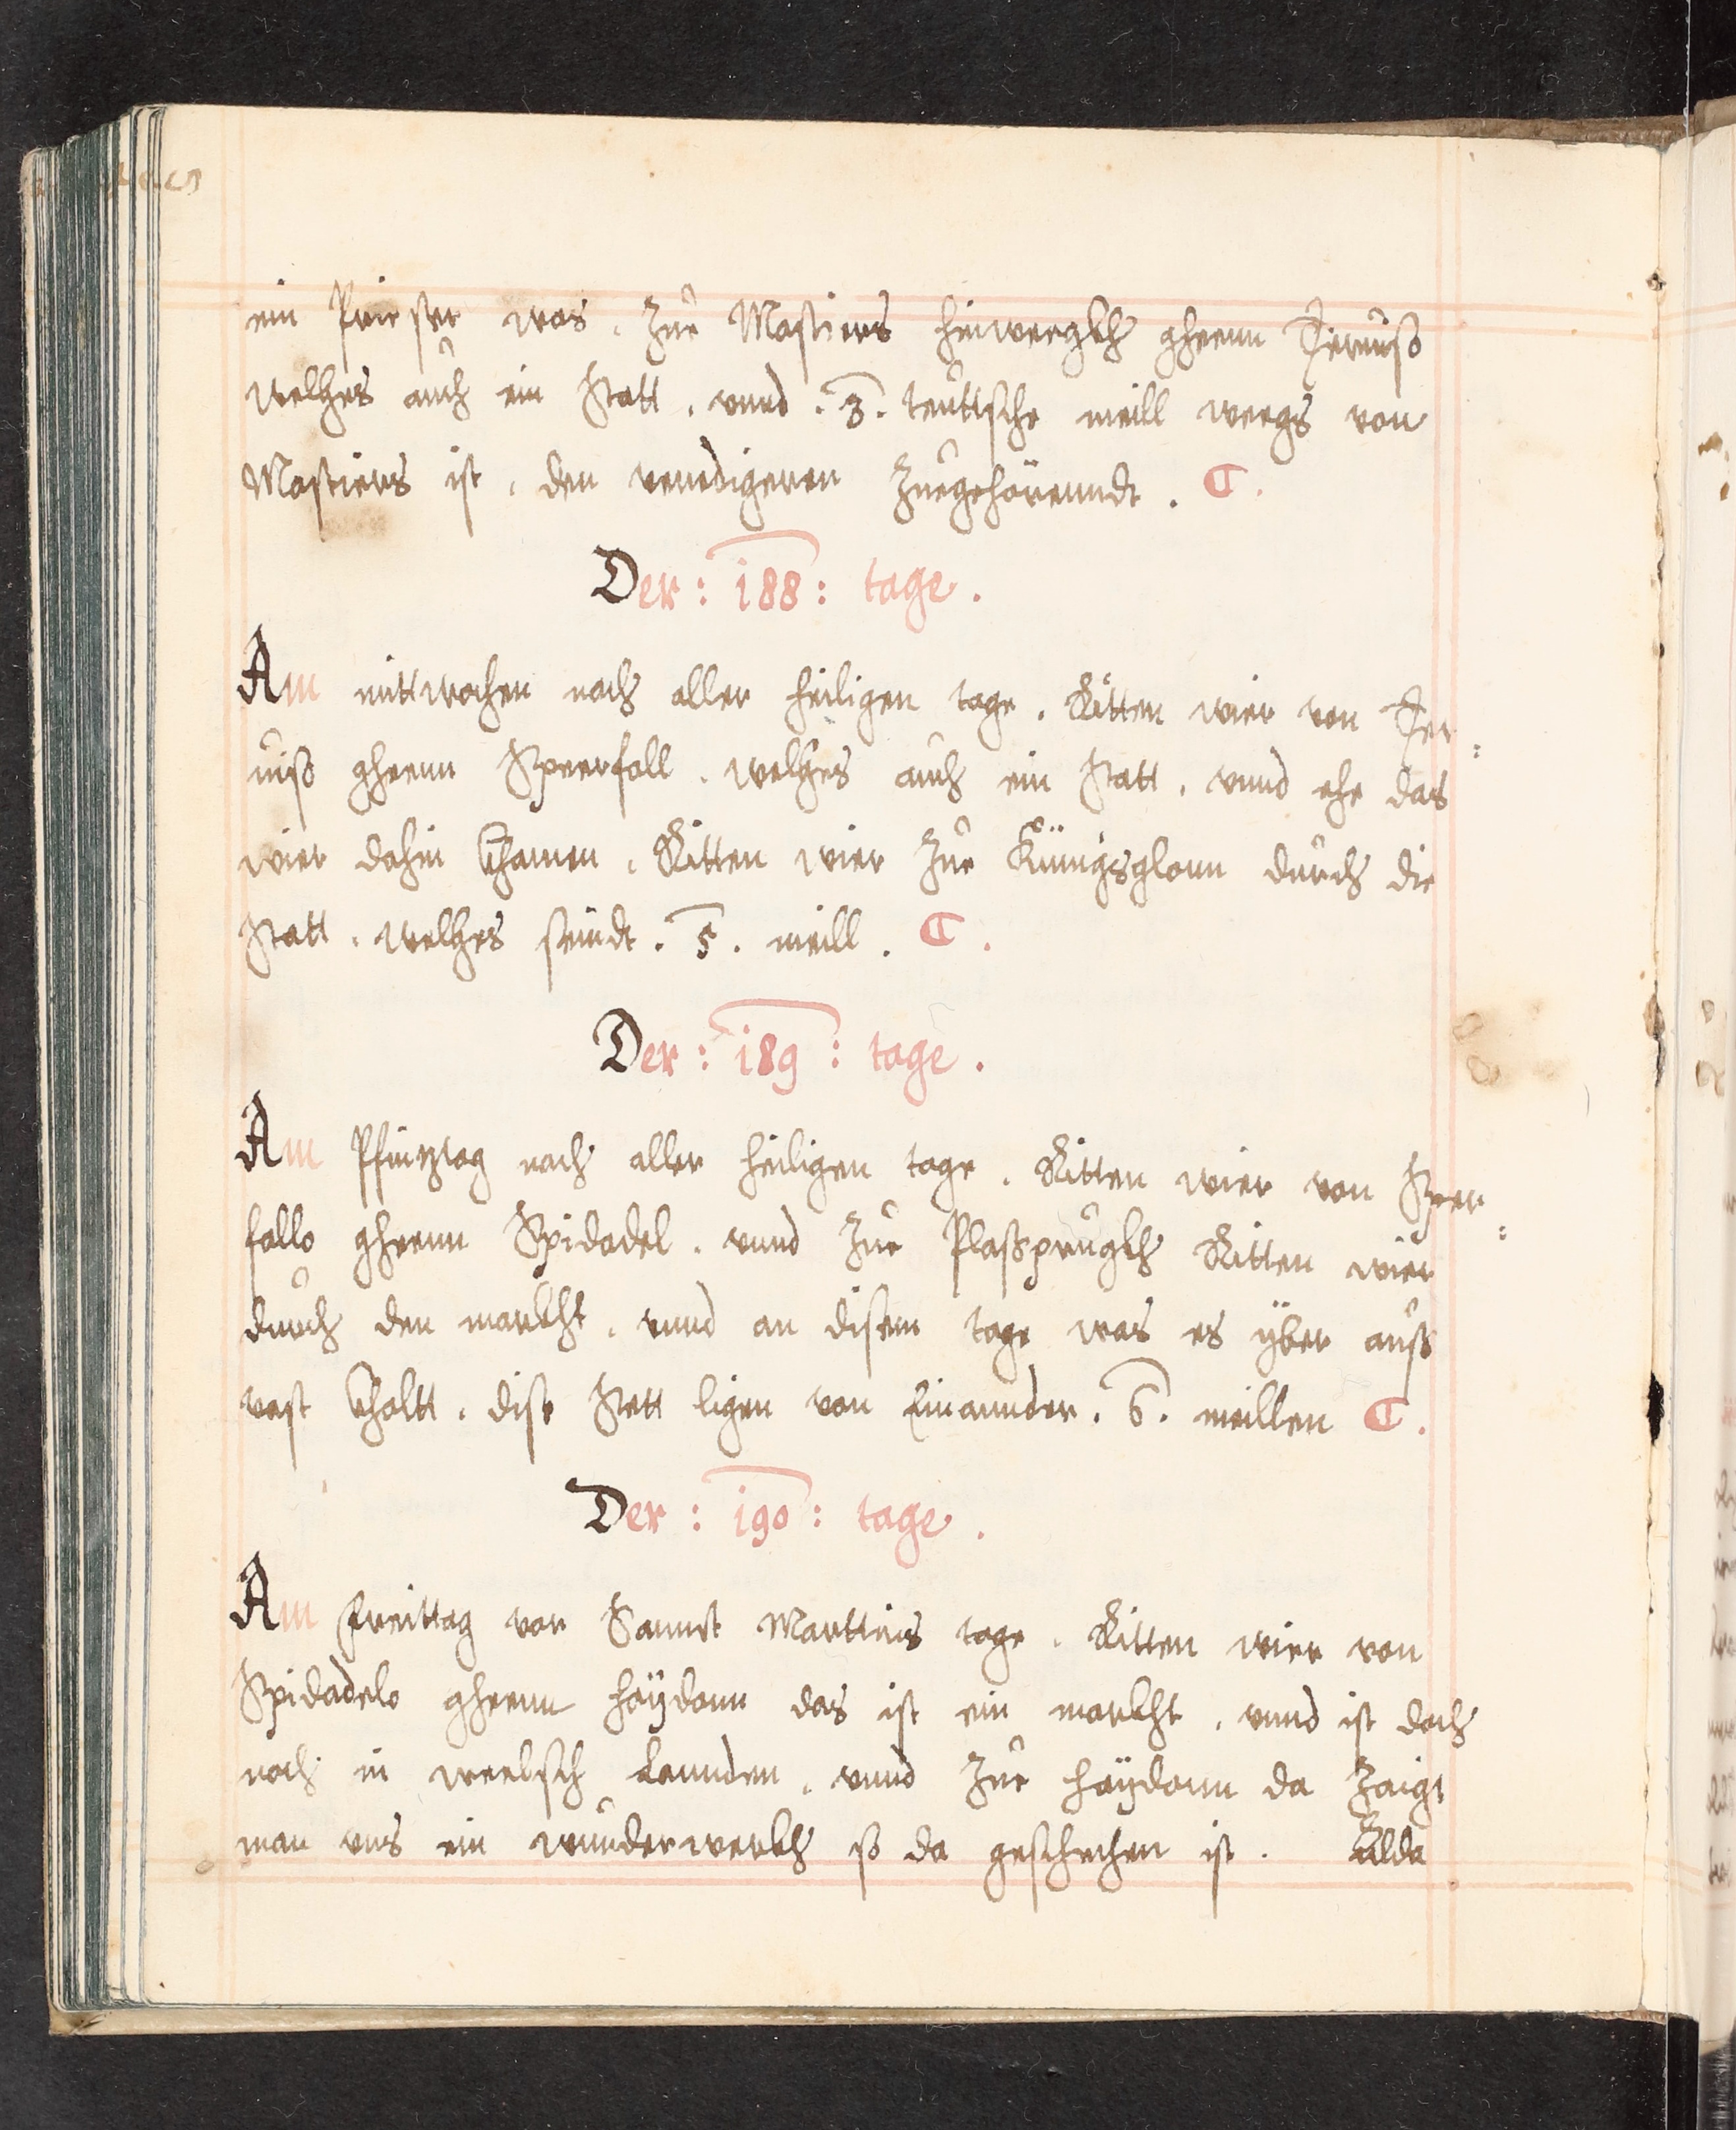 ein Priester was. Zue Mastiers hinwergkh gheenn Teruiß
welhes auch ein Statt. vnnd .3. teuttsche meill wergs von
Mastiers ist. den venedigeren Zuegehörenndt.
Der: 188: tage.
Am mittwochen nach aller heiligen tage. Ritten wier von Ter:
uiß gheenn Speerfall. welhes auch ein Statt. vnnd ehe das
wier dahin khamen. Ritten wier Zue Künigsglann durch die
Statt. welhes seindt .5. meill.
Der: 189: tage.
Am Pfintztag nach aller heiligen tage. Ritten wier von Speer:
fallo gheenn Spidadel. vnnd Zue Plaßprugkh Ritten wier
durch den markht. vnnd an disem tage was es yber auß
vast khaltt. dise Stett ligen von Einannder .6. meillen
Der: 190: tage.
Am Freittag vor Sannct Marttins tage. Ritten wier von
Spidadelo gheenn haÿdann das ist ein markht. vnnd ist doch
noch in weelsch Lannden. vnnd Zue haÿdann da Zaigt
man vns ein wunderwerkh so da geschechen ist. Allda